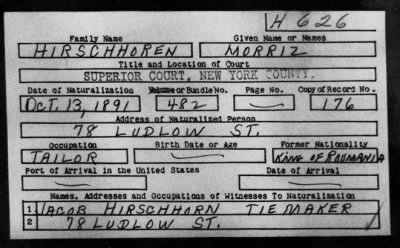 H 626
Family Name Given Name or Names
HIRSCHHOREN MORRIZ
Title and Location of Court
SUPERIOR COURT, NEW YORK COUNTY.
Date of Naturalization Volume or Bundle No. Page No. Copy of Record No.
OCT. 13, 1891 482 176
Address of Naturalized Person
78 LUDLOW ST.
Occupation Birth Date or Age Former Nationality
TAILOR KING OF ROUMANIA
Port of Arrival in the United States Date of Arrival
Names, Addresses and Occupations of Witnesses To Naturalization
1 JACOB HIRSCHHORN TIEMAKER
2 78 LUDLOW ST.